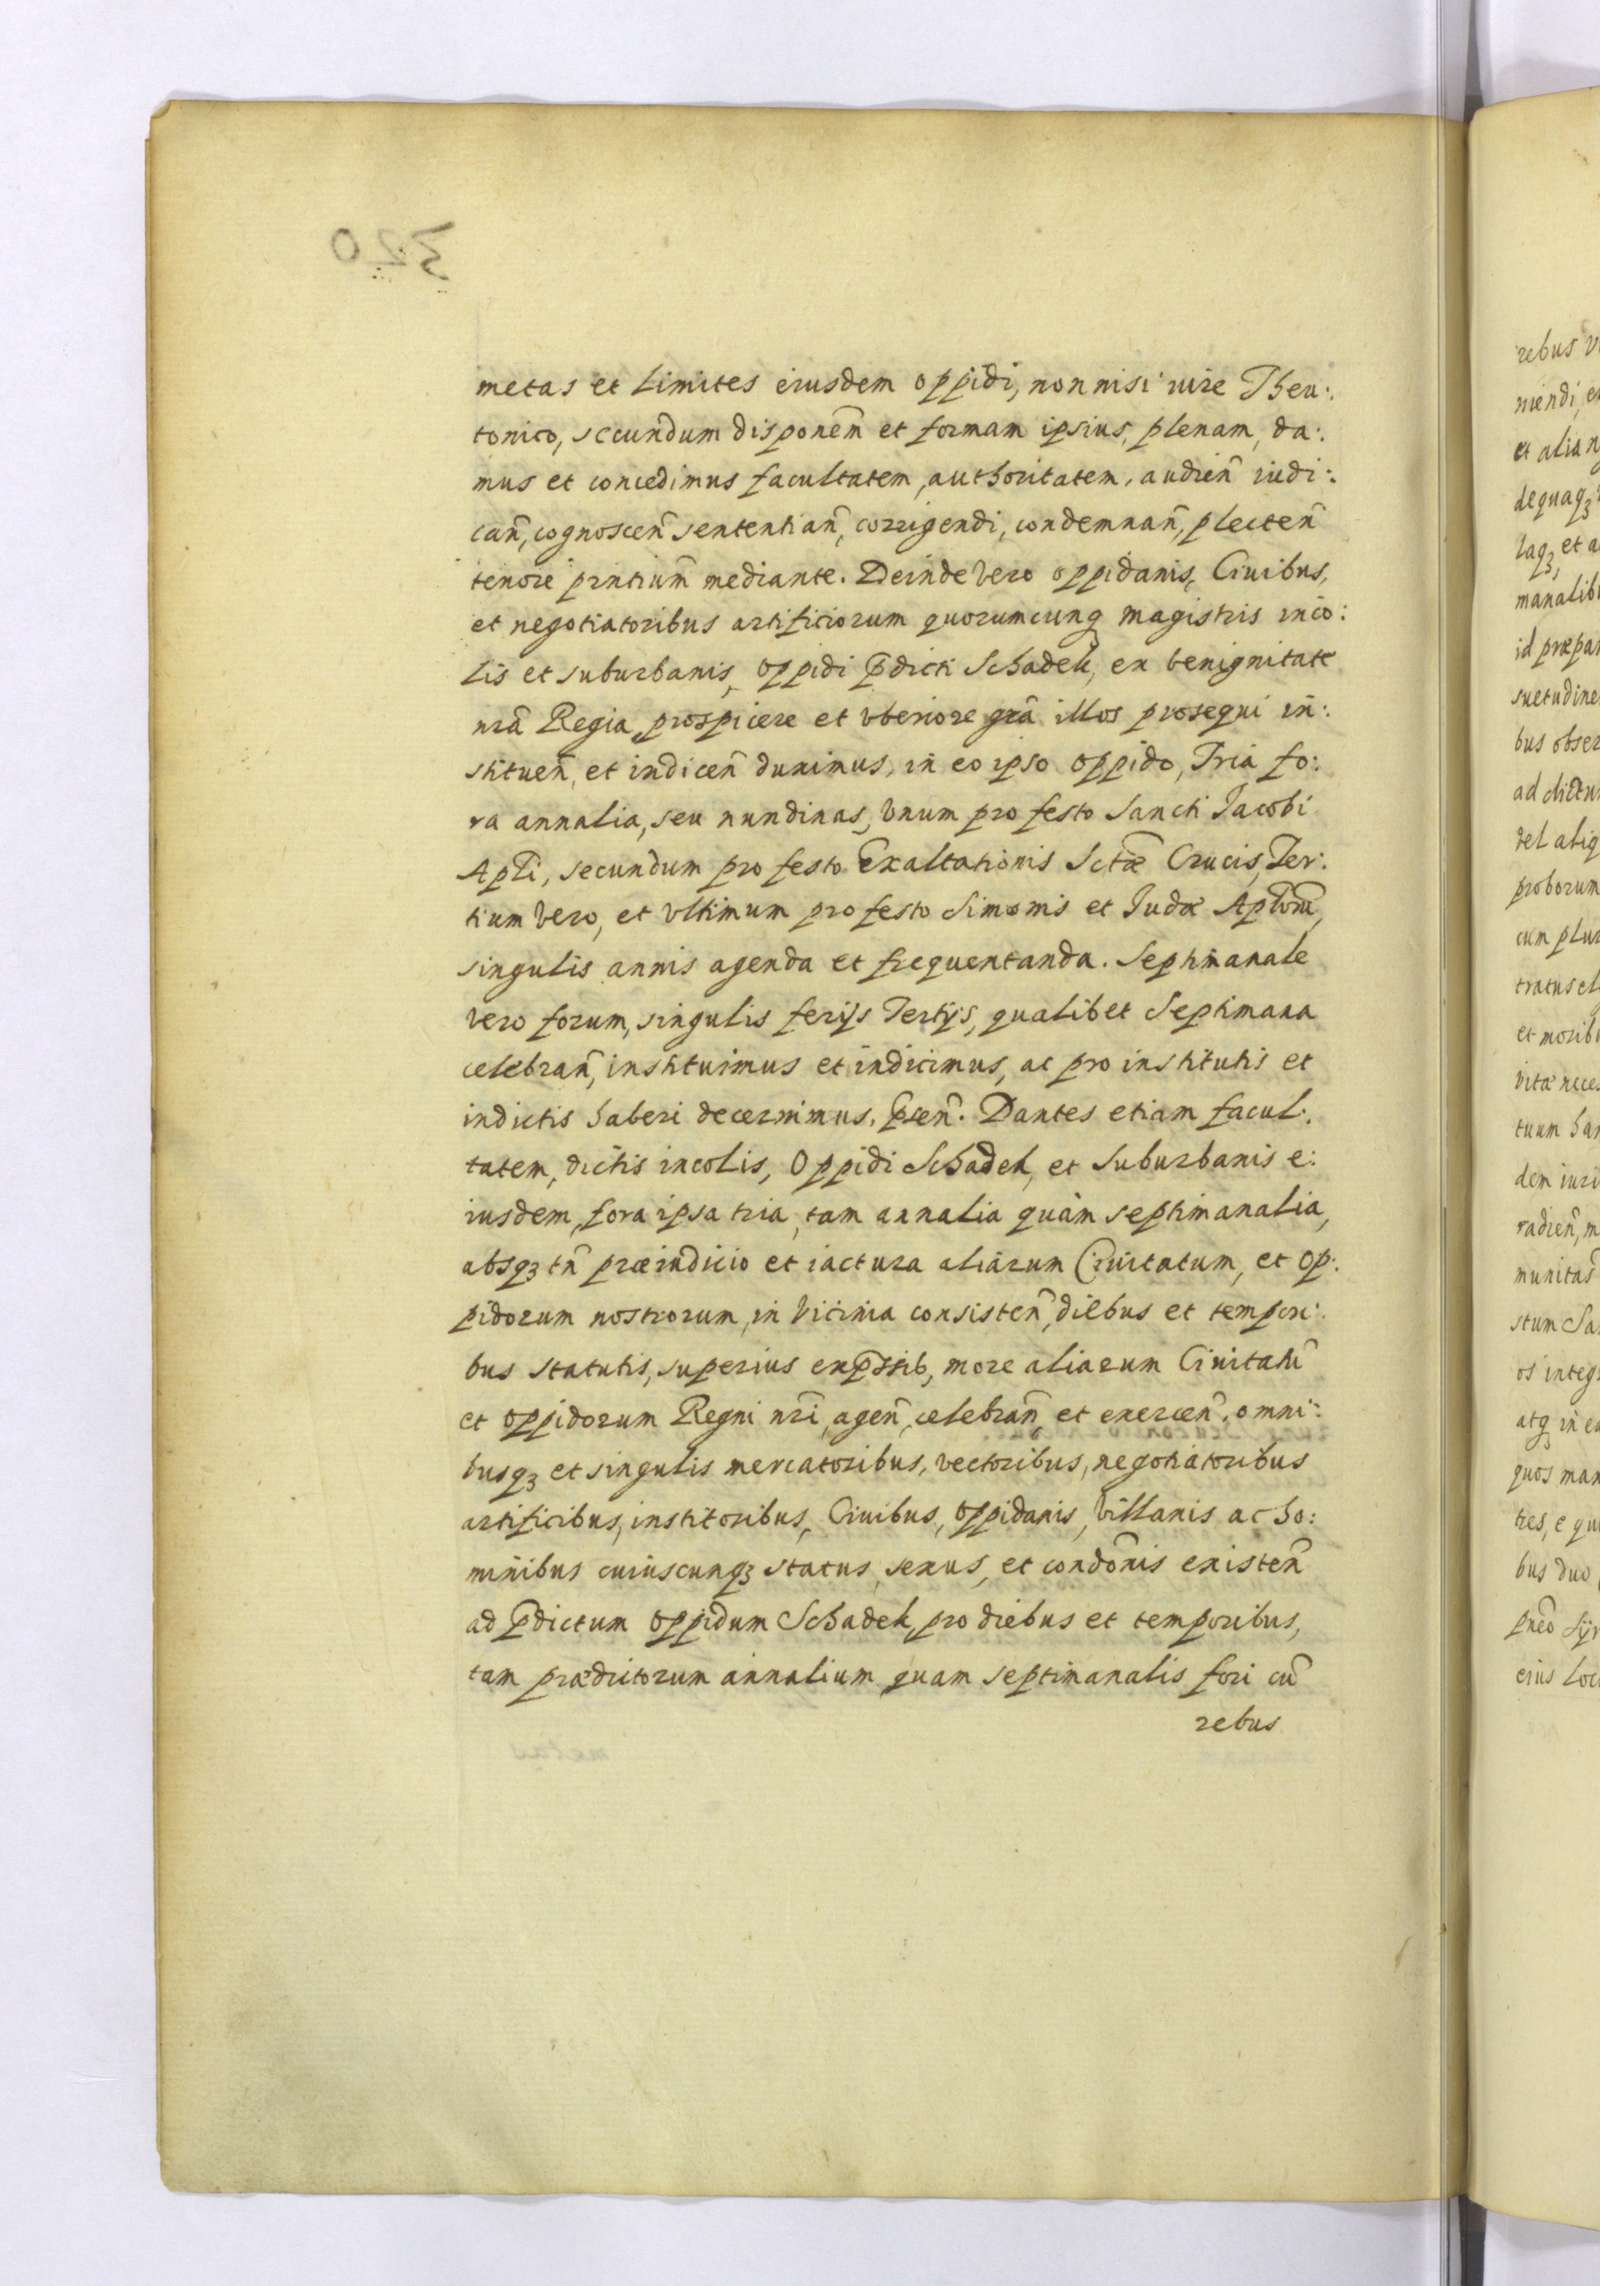 metas et limites eiusdem oppidi, non nisi iure Theu:
tonico, secundum disponem̃ et formam ipsius, plenam, da:
mus et concedimus facultatem, authoritatem, audien̄ iudi:
can̄, cognoscen̄ sententian̄, corrigendi, condemnan̄, plecten̄
tenore pñtium̄ mediante. Deinde vero oppidanis, Ciuibus,
et negotiatoribus artificiorum quorumcunq magistris inco:
lis et suburbanis, oppidi p̄dicti Schadek, ex benignitate
nr̄a Regia prospicere et vberiore gr̄a illos prosequi in:
stituen̄, et indicen̄ duximus, in eo ipso oppido, Tria fo:
ra annalia, seu nundinas, vnum pro festo Sancti Jacobi
Apl̄i, secundum pro festo Exaltationis Sctæ̃ Crucis, Ter:
tium vero, et vltimum pro festo Simonis et Judæ Apl̄orum̄,
singulis annis agenda et frequentanda. Septimanale
vero forum, singulis ferijs Tertijs, qualibet Septimana
celebran̄, instituimus et indicimus, ac pro institutis et
indictis haberi decernimus, p̄sen̄. Dantes etiam facul:
tatem, dictis incolis, Oppidi Schadek, et Suburbanis e:
iusdem, fora ipsa tria, tam annalia quàm septimanalia,
absqꝫ tn̄ præiudicio et iactura aliarum Ciuitatum, et Op:
pidorum nostrorum, in vicinia consisten̄, diebus et tempori:
bus statutis, superius exp̄ssib, more aliarum Ciuitatū
et oppidorum Regni nr̄i, agen̄, celebran̄, et exercen̄. omni:
busqꝫ et singulis mercatoribus, vectoribus, negotiatoribus
artificibus, institoribus, Ciuibus, oppidanis, villanis ac ho:
minibus cuiuscunqꝫ status, sexus, et condōnis existen̄
ad p̄dictum oppidum Schadek, pro diebus et temporibus,
tam prædictorum annalium quam septimanalis fori cū
rebus